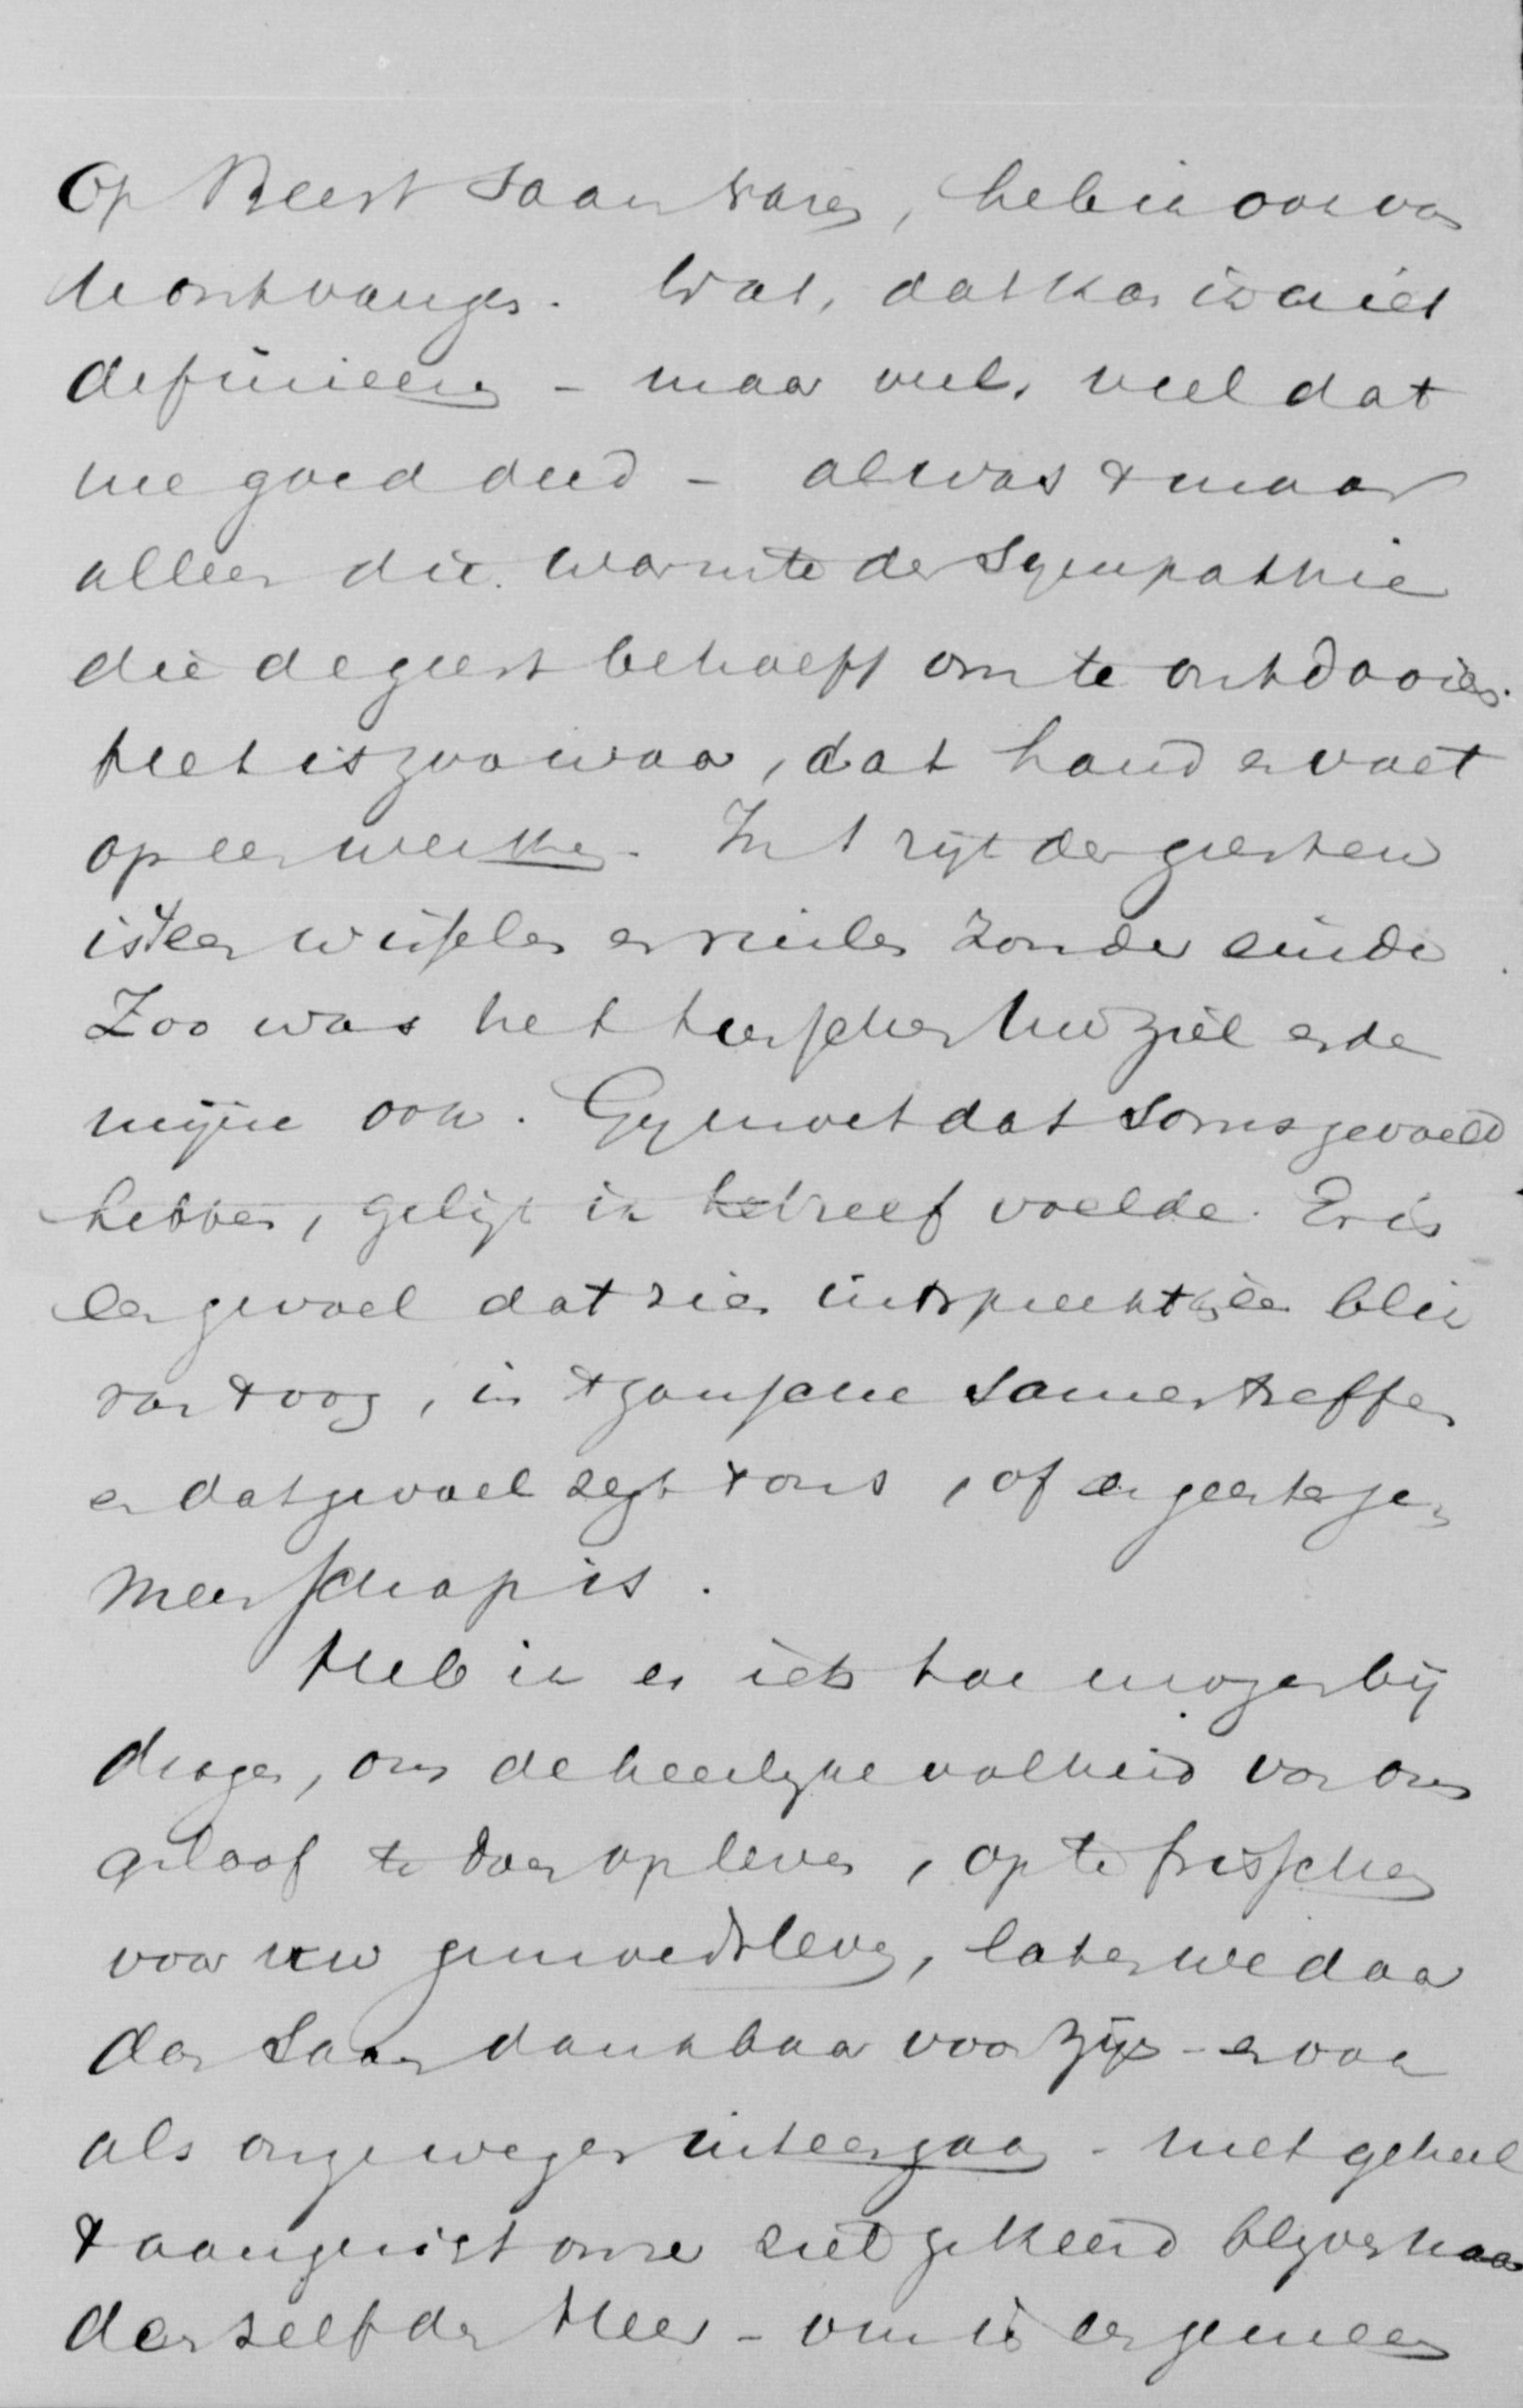 Op Beest saam waren, heb ik ook van
U ontvangen. Wat, dat kan ik niet
definieeren - maar veel, veel dat
me goed deed - al was 't maar
alleen die warmte der sympathie
die de geest behoeft om te ontdooien.
Het is zoo waar, dat hand en voet
op een werken. In 't rijk der geesten
is 't een wisselen en ruilen zonder einde
Zoo was het tusschen Uw ziel en de
mijne ook. Gij moet dat soms gevoeld
hebben, gelijk ik het reef voelde. Er is
een gevoel dat zich uitspreekt in een blik
van 't oog, in 't gansche samentreffen
en dat gevoel zegt 't ons, of er geestesge-
meenschap is.
Heb ik er iets toe mogen bij
dragen, om de heerlijke volheid van ons
geloof te doen opleven, op te frisschen
voor uw gemoedsleven, laten we daar
dan saam dankbaar voor zijn - en ook
als onze wegen uiteengaan - met geheel
't aangezicht onzer ziel gekeerd blijven naar
denzelfden Heer - om in een gemeen